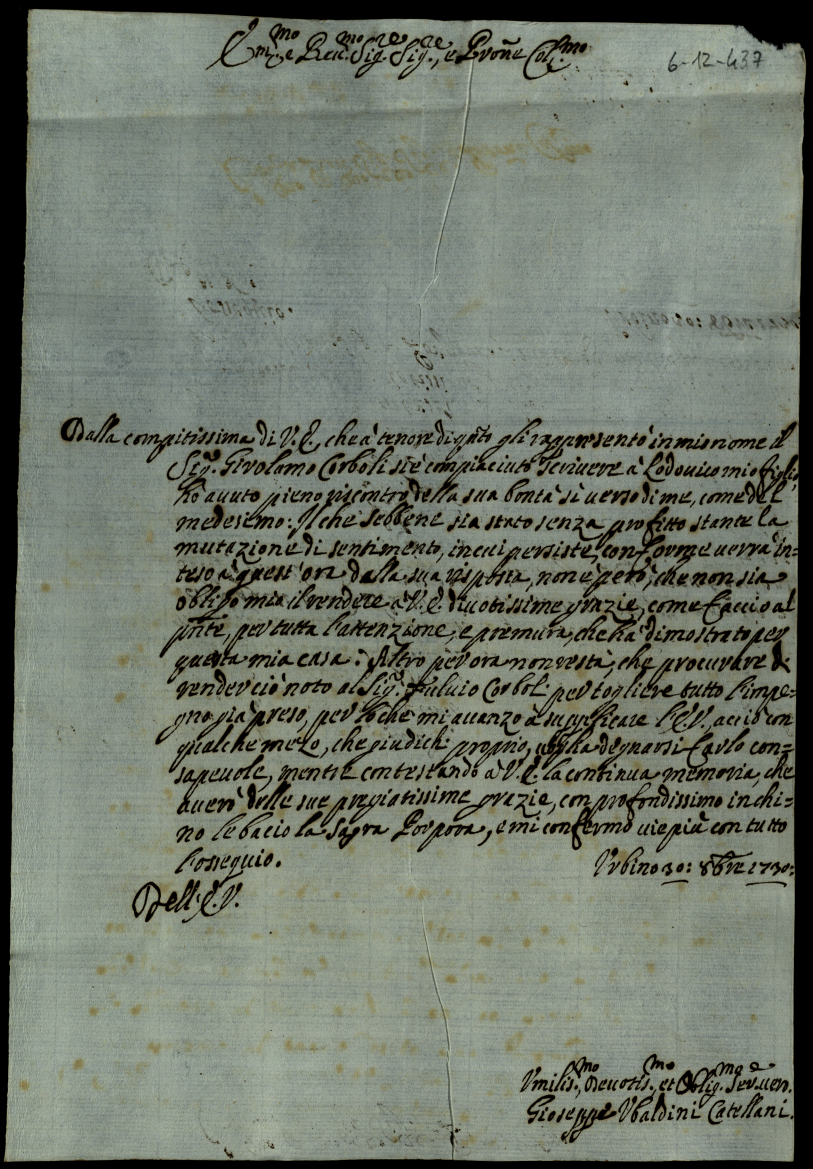 Em.mo e Reu.mo Sig.re Sig.re, e Prone Col.mo
6-12-437
Dalla compitissima di V.E., che à tenore di q̃nto gli rappresentò in mio nome il
Sig.r Girolamo Corboli si è compiaciuto scrivere à Lodovico mio figlio,
hò avuto pieno riscontro della sua bontà sì verso di me, come del
medesimo: Il che sebbene sia stato senza profitto stante la
mutazione di sentimento, in cui persiste, conforme uerrà in=
teso à quest'ora dalla sua risposta, non è però, che non sia
obligo mio il rendere à V.E. divotissime grazie, come faccio al
p̃nte, per tutta l'attenzione, e premura, che hà dimostrato per
questa mia casa: Altro per ora non resta, che procurare di
render ciò noto al Sig.r Fuluio Corboli per togliere tutto l'impe=
gno già preso, per lo che mi auanzo à supplicare l'E.V., acciò con
qualche mezo, che giudichi proprio, voglia degnarsi farlo con=
sapeuole, mentre contestando à V.E. la continua memoria, che
auerò delle sue pregiatissime grazie, con profondissimo inchi=
no le bacio la Sagra Porpora, e mi confermo uie più con tutto
l'ossequio.
Urbino 30: 8bre 1730:
Dell'E.V.
Umilis.mo, Deuotis.mo, et Oblig.mo Ser.e uero.
Gioseppe Ubaldini Catellani.